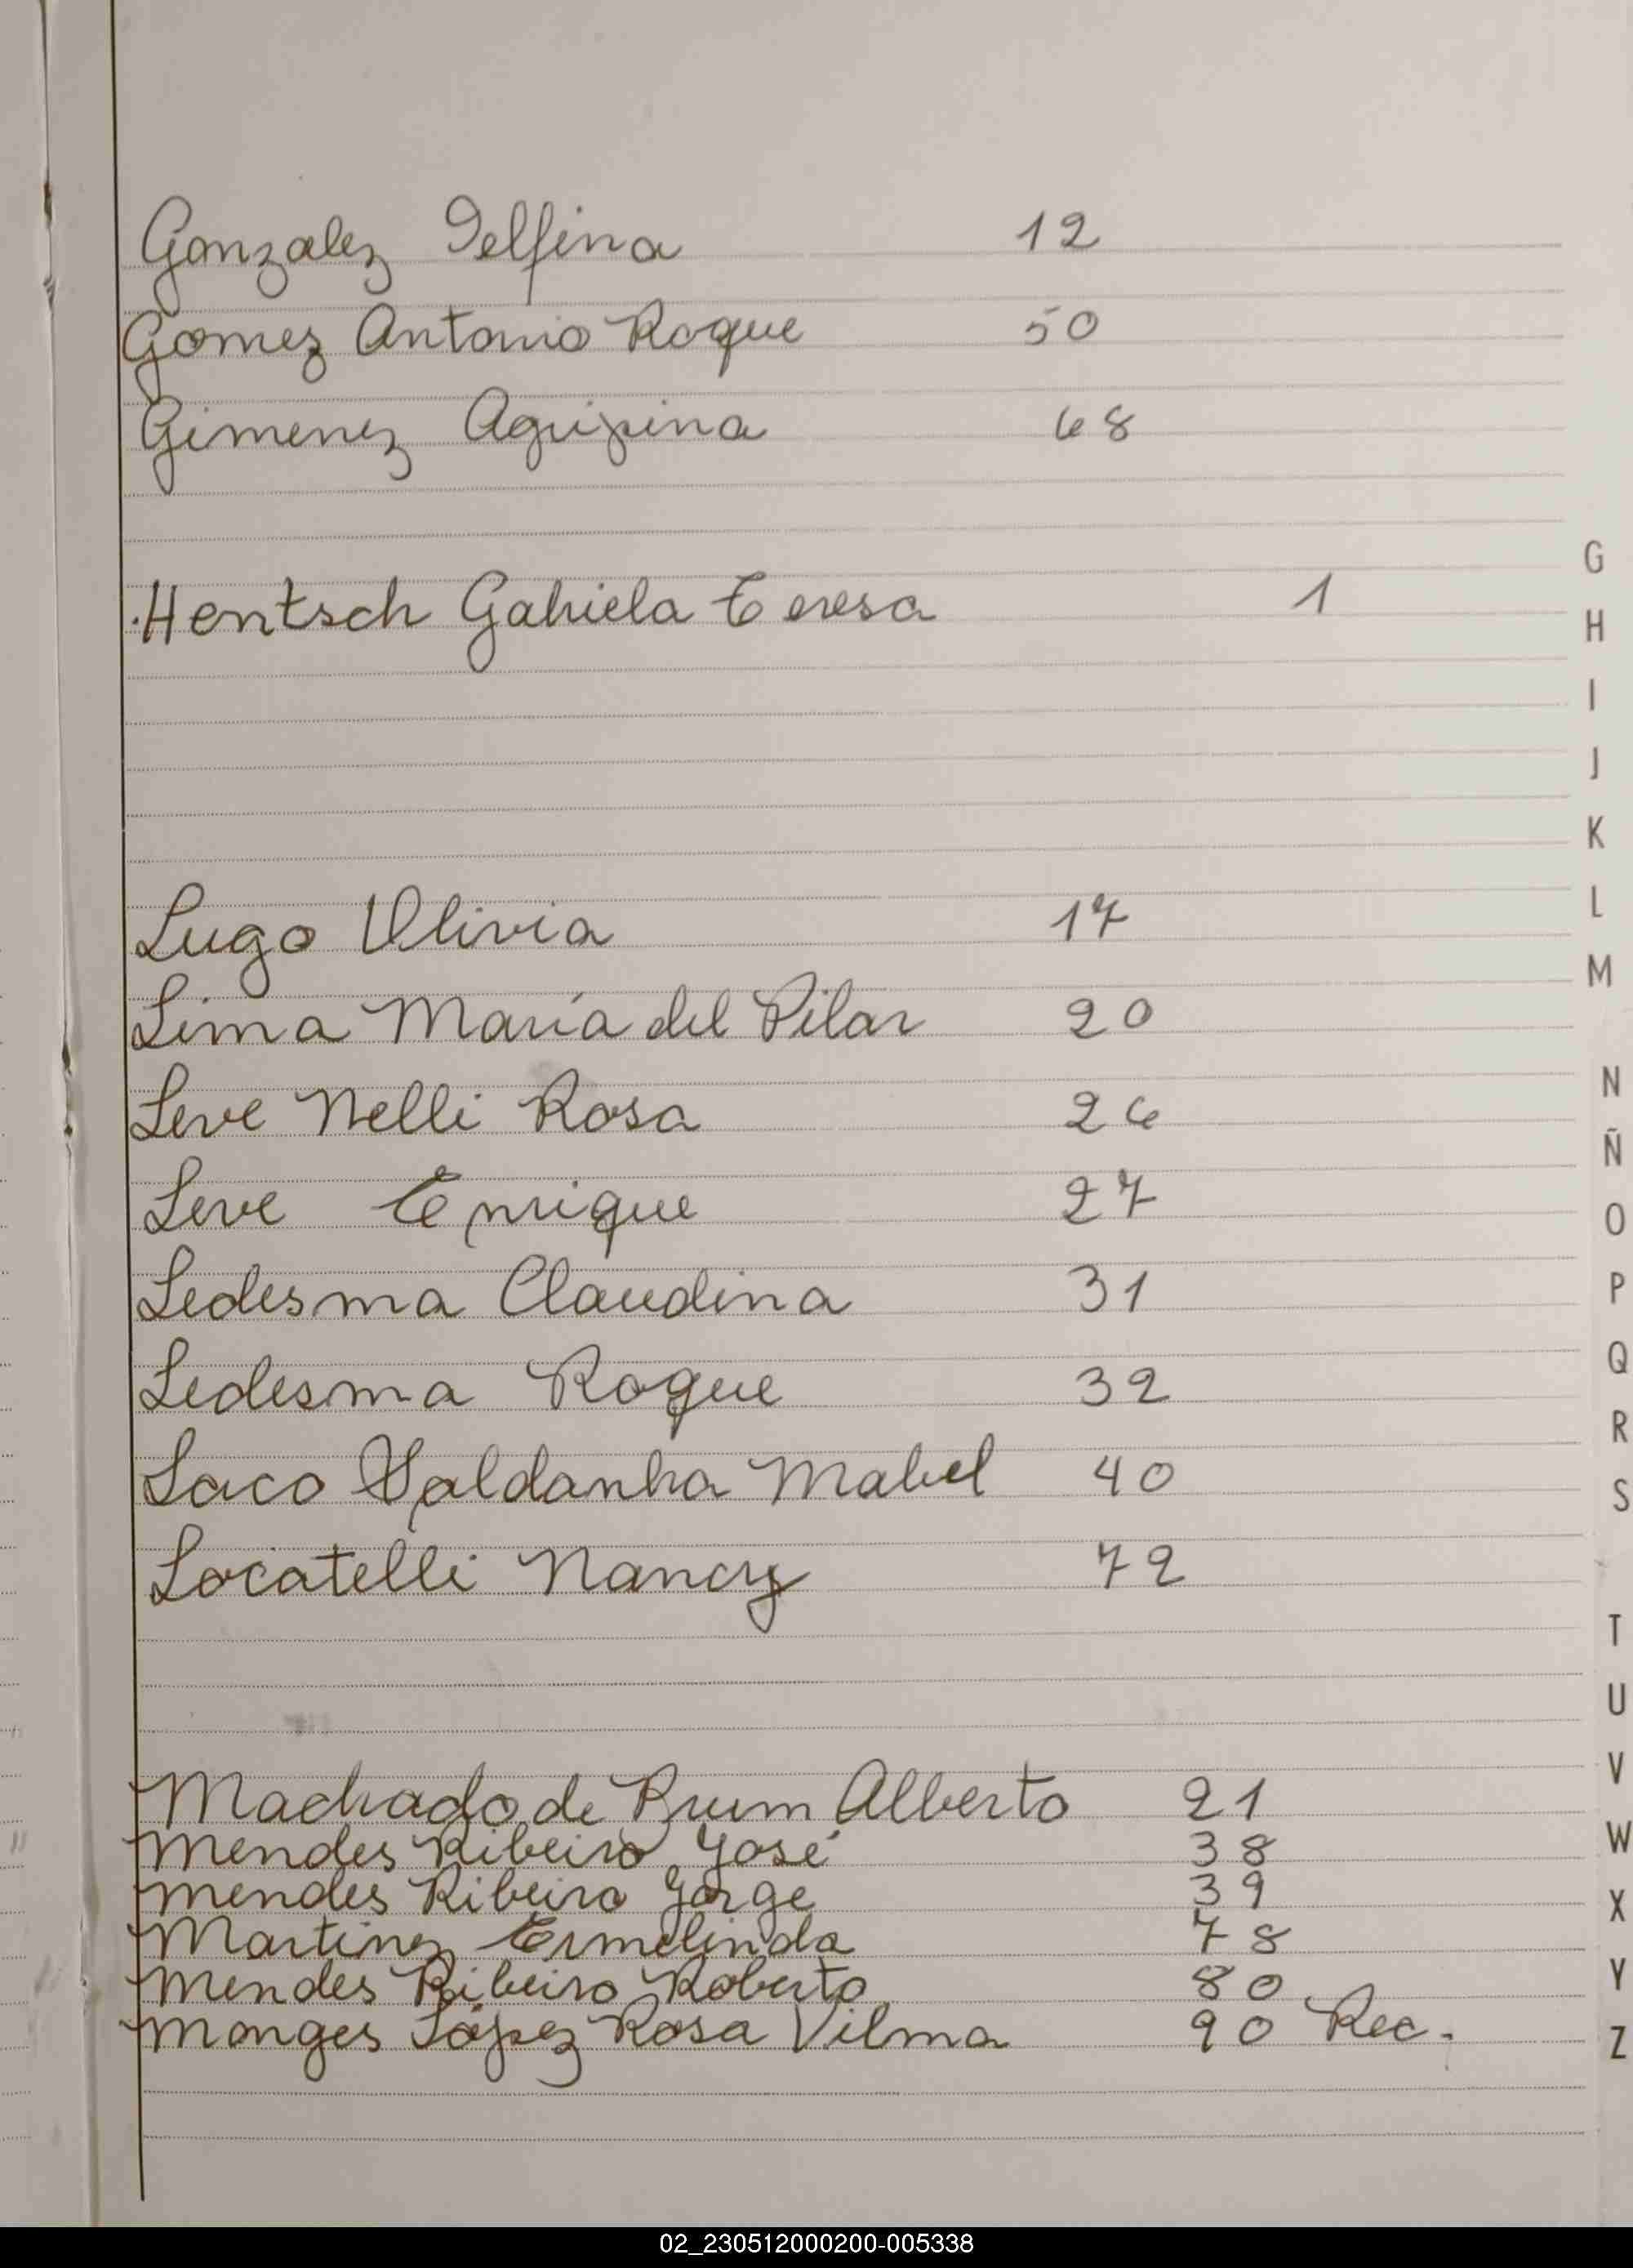 Gonzalez Delfina 12
Gomez Antonio Roque 50
Gimenez Agripina 68
Hentsch Gabriela Teresa 1
Lugo Olivia 17
Lima María del Pilar 20
Leve Nelli Rosa 26
Leve Enrique 27
Ledesma Claudina 31
Ledesma Roque 32
Laco Saldanha Mabel 40
Locatelli Nancy 72
Machado de Brum Alberto 21
Mendes Ribeiro José 38
Mendes Ribeiro Jorge 39
Martinez Ermelinda 78
Mendes Ribeiro Roberto 80
Monges López Rosa Vilma 90 Rec.
G
H
I
J
K
L
M
N
Ñ
O
P
Q
R
S
T
U
V
W
X
Y
Z
02_230512000200-005338